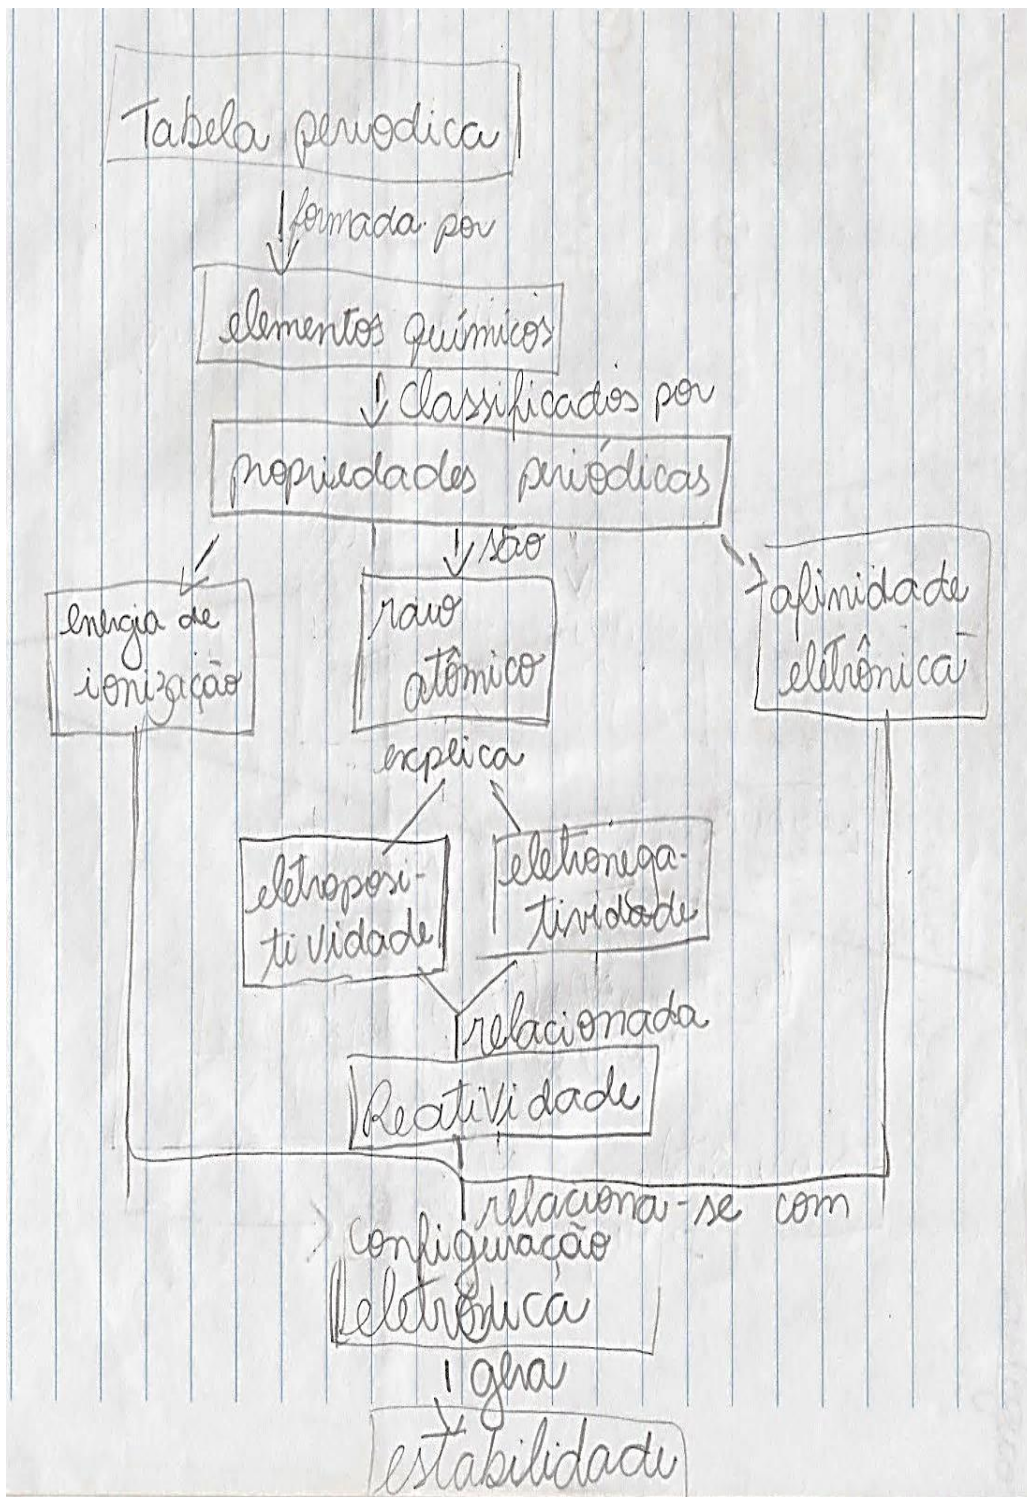 Tabela periodica
formada por
elementos químicos
classificados por
propriedades periódicas
são
energia de
ionização
raio
atômico
afinidade
eletrônica
explica
eletroposi-
tividade
eletronega-
tividade
relacionada
Reatividade
relaciona-se com
configuração
eletrônica
gera
estabilidade